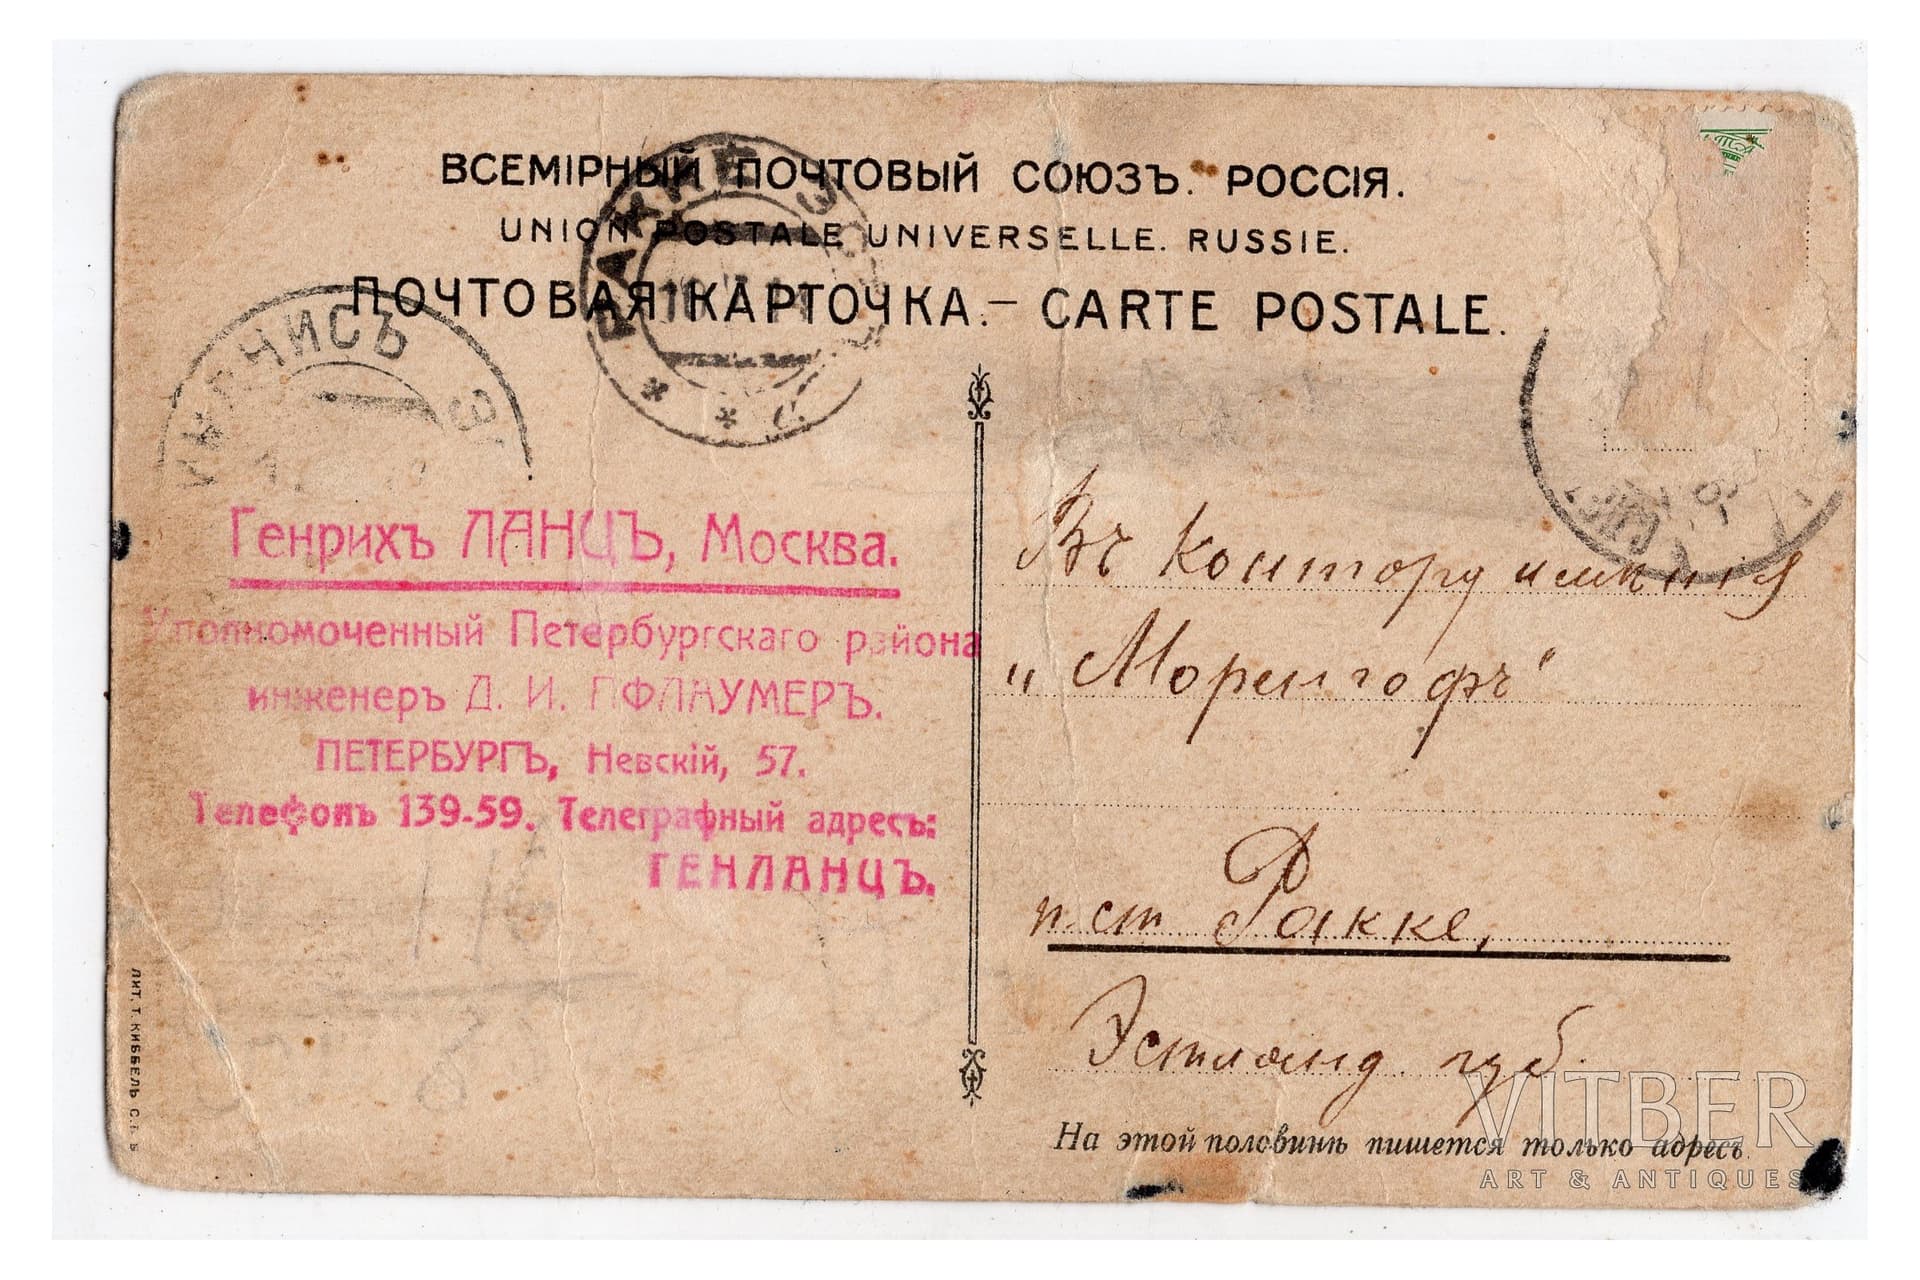 ВСЕМІРНЫЙ ПОЧТОВЫЙ СОЮЗЪ. РОССІЯ.
UNION POSTALE UNIVERSELLE. RUSSIE.
ПОЧТОВАЯ КАРТОЧКА.– CARTE POSTALE.
РАККЕ Э
Генрихъ ЛАНЦЪ, Москва.
Уполномоченный Петербургскаго района
инженеръ Д. И. ПФЛАУМЕРЪ.
ПЕТЕРБУРГЪ, Невскій, 57.
Телефонъ 139-59. Телеграфный адресъ:
ГЕНЛАНЦЪ.
ЛИТ. Т. КИББЕЛЬ С.П.Б
Въ Контору имѣнія
„Моренгофъ"
п. ст Ракке,
Эстлянд. губ.
На этой половинѣ пишется только адресъ.
VITBER
ART & ANTIQUES